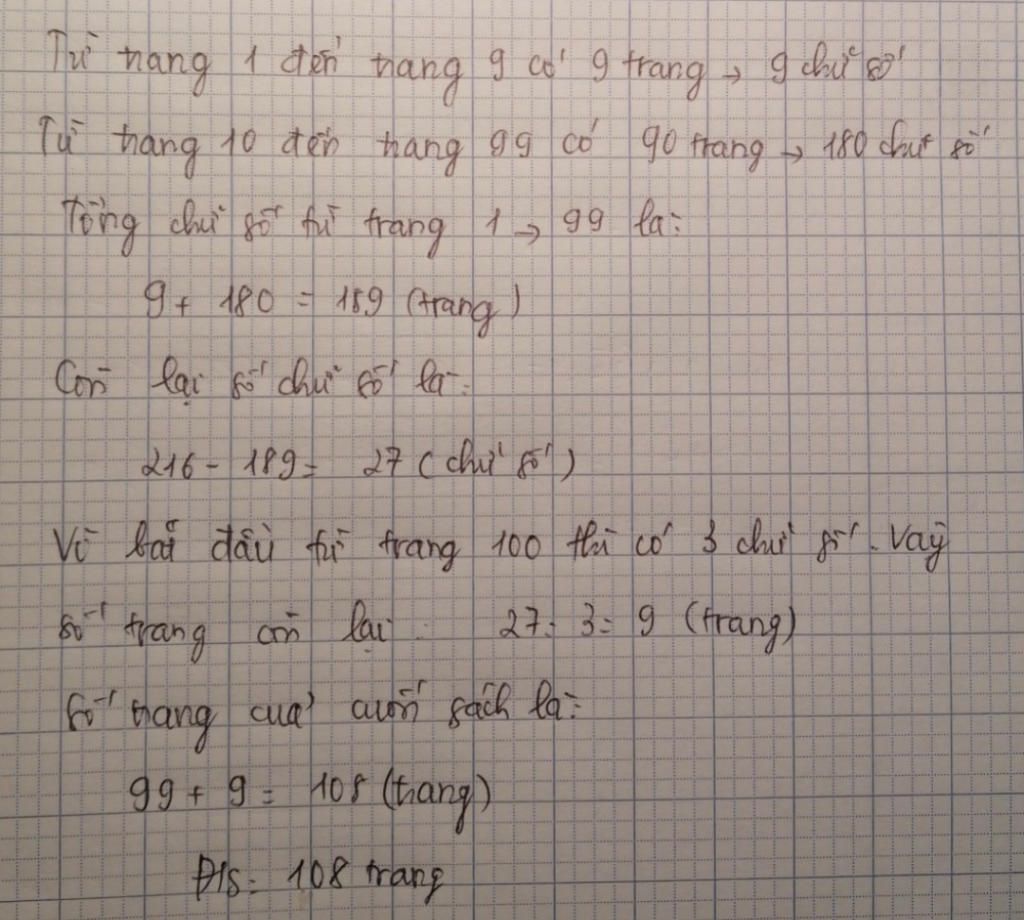 Từ trang 1 đến trang 9 có 9 trang → 9 chữ số
Từ trang 10 đến trang 99 có 90 trang → 180 chữ số
Tổng chữ số từ trang 1 → 99 là:
9 + 180 = 189 (trang)
Còn lại số chữ số là:
216 - 189 = 27 (chữ số)
Vì bắt đầu từ trang 100 thì có 3 chữ số. Vậy
số trang còn lại: 27 : 3 = 9 (trang)
Số trang của cuốn sách là:
99 + 9 = 108 (trang)
Đ/s: 108 trang